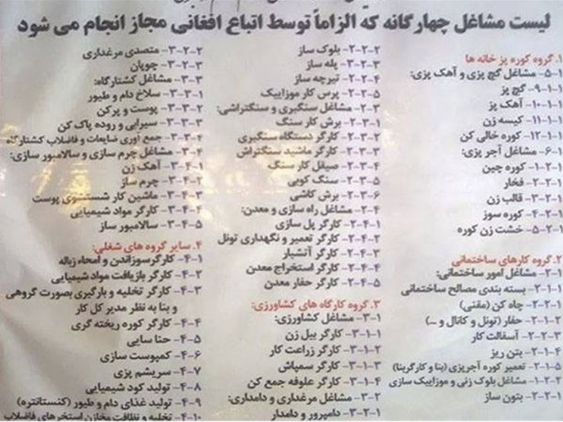 لیست مشاغل چهارگانه که الزاماً توسط اتباع افغانی مجاز انجام می شود
۱. گروه کوره پز خانه ها
۱-۵- مشاغل گچ پزی و آهک پزی:
۱-۱-۹- گچ پز
۱-۱-۱۰- آهک پز
۱-۱-۱۱- کیسه زن
۱-۱-۱۲- کوره خالی کن
۱-۶- مشاغل آجر پزی:
۱-۲-۱- کوره چین
۱-۲-۲- فخار
۱-۲-۳- قالب زن
۱-۲-۴- کوره سوز
۱-۲-۵- خشت زن کوره
۲. گروه کارهای ساختمانی
۲-۱- مشاغل امور ساختمانی:
۲-۱-۱- بسته بندی مصالح ساختمانی
۲-۱-۲- چاه کن (مقنی)
۲-۱-۲- حفار (تونل و کانال و ...)
۲-۱-۳- آسفالت کار
۲-۱-۴- بتن ریز
۲-۱-۵- تعمیر کوره آجرپزی (بنا و کارگربنا)
۲-۲- مشاغل بلوک زنی و موزاییک سازی
۲-۲-۱- بتون ساز
۲-۲-۲- بلوک ساز
۲-۲-۳- پله ساز
۲-۲-۴- تیرچه ساز
۲-۲-۵- پرس کار موزاییک
۲-۳- مشاغل سنگبری و سنگتراشی:
۲-۳-۱- برش کار سنگ
۲-۳-۲- کارگر دستگاه سنگبری
۲-۳-۳- کارگر ماشید سنگتراش
۲-۳-۴- صیقل کار سنگ
۲-۳-۵- سنگ کوبی
۲-۳-۶- برش کاشی
۲-۴- مشاغل راه سازی و معدن:
۲-۴-۱- کارگر پل سازی
۲-۴-۲- کارگر تعمیر و نگهداری تونل
۲-۴-۳- کارگر آتشبار
۲-۴-۴- کارگر استخراج معدن
۲-۴-۵- کارگر حفار معدن
۳. گروه کارگاه های کشاورزی:
۳-۱- مشاغل کشاورزی:
۳-۱-۱- کارگر بیل زن
۳-۱-۲- کارگر زراعت کار
۳-۱-۳- کارگر سمپاش
۳-۱-۴- کارگر علوفه جمع کن
۳-۲- مشاغل مرغداری و دامداری:
۳-۲-۱- دامپرور و دامدار
۳-۲-۲- متصدی مرغداری
۳-۲-۳- چوپان
۳-۳- مشاغل کشتارگاه:
۳-۳-۱- سلاخ دام و طیور
۳-۳-۲- پوست و پرکن
۳-۳-۳- سیرابی و روده پاک کن
۳-۳-۴- جمع آوری ضایعات و فاضلاب کشتارگاه
۳-۴- مشاغل چرم سازی و سالامبور سازی:
۳-۴-۱- آهک زن
۳-۴-۲- چرم ساز
۳-۴-۳- ماشین کار شستشوی پوست
۳-۴-۴- کارگر مواد شیمیایی
۳-۴-۵- سالامبور ساز
۴. سایر گروه های شغلی:
۴-۱- کارگرسوزاندن و امحاء زباله
۴-۲- کارگر بازیافت مواد شیمیایی
۴-۳- کارگر تخلیه و بارگیری بصورت گروهی
و بنا به نظر مدیر کل کار
۴-۴- کارگر کوره ریخته گری
۴-۵- حنا سایی
۴-۶- کمپوست سازی
۴-۷- سریشم پزی
۴-۸- تولید کود شیمیایی
۴-۹- تولید غذای دام و طیور (کنسانتره)
۴-۱۰- تخلیه و نظافت مخازن استخرهای فاضلاب